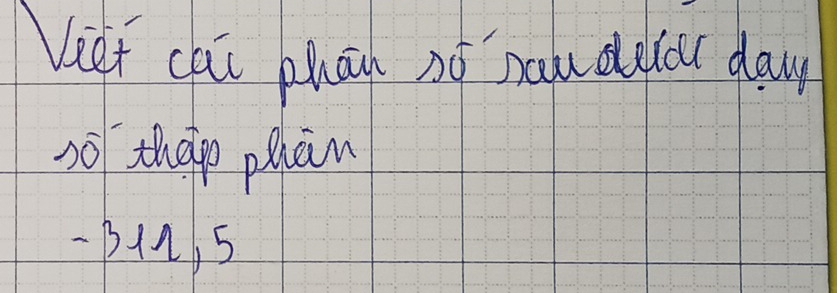 Viết các phân số sau dưới dạng
số thập phân
-311,5